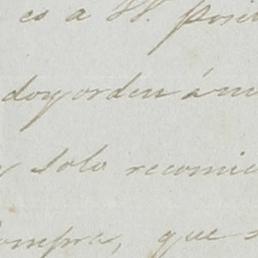 es a W. posi
doy orden á m
y solo recomie
compra, que s